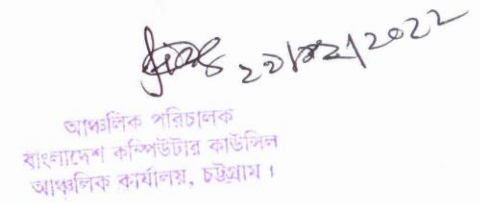 ২২/১২/2022
আঞ্চলিক পরিচালক
বাংলাদেশ কম্পিউটার কাউন্সিল
আঞ্চলিক কার্যালয়, চট্টগ্রাম।